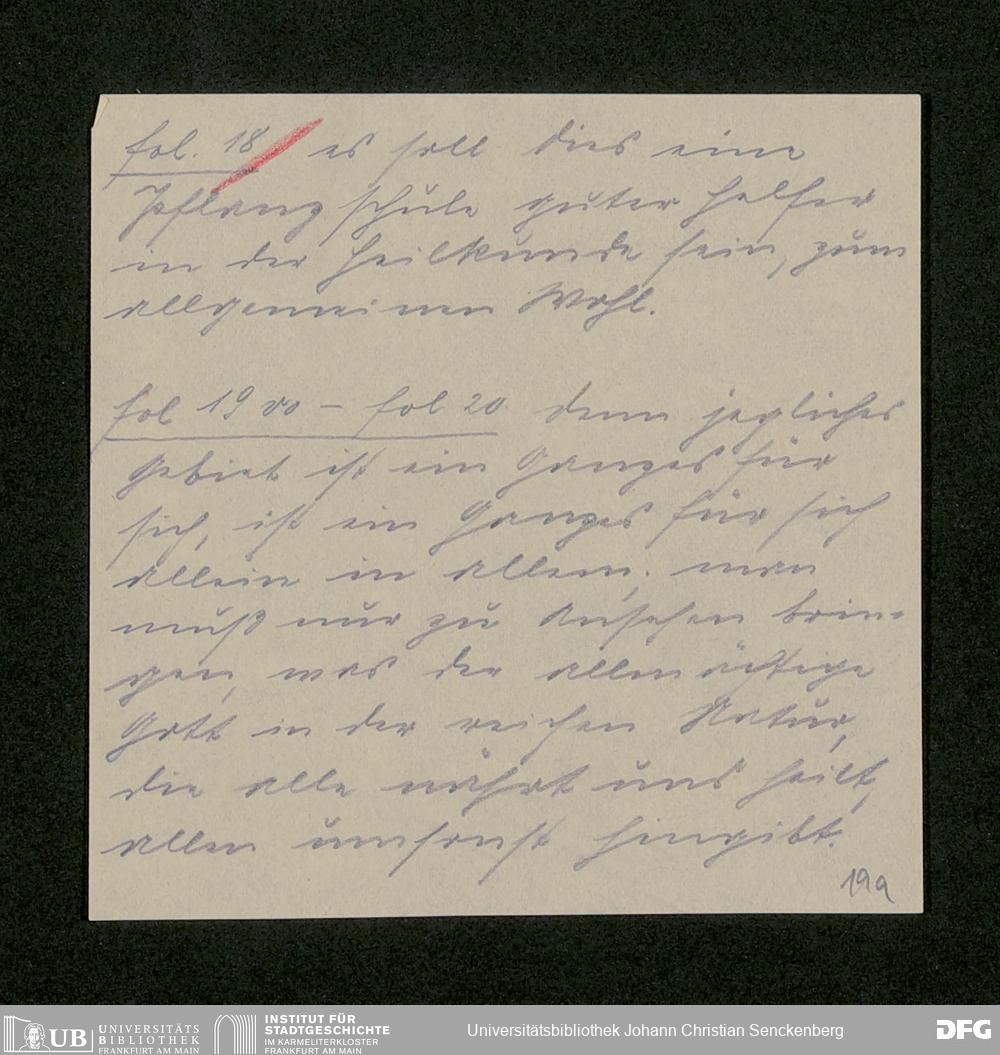 fol. 18 es soll dies eine
Pflanzschule guter Helfer
in der Heilkunde sein, zum
allgemeinen Wohl.
fol 19 vo - fol 20 denn jegliches
Gebiet ist ein Ganzes für
sich, ist ein Ganzes für sich
allein in allem; man
muß nur zu Ansehen brin-
gen, was der allmächtige
Gott in der reichen Natur,
die alle nährt und heilt,
allen umsonst hingibt.
19a
UB UNIVERSITÄTS
BIBLIOTHEK
FRANKFURT AM MAIN
INSTITUT FÜR
STADTGESCHICHTE
IM KARMELITERKLOSTER
FRANKFURT AM MAIN
Universitätsbibliothek Johann Christian Senckenberg
DFG